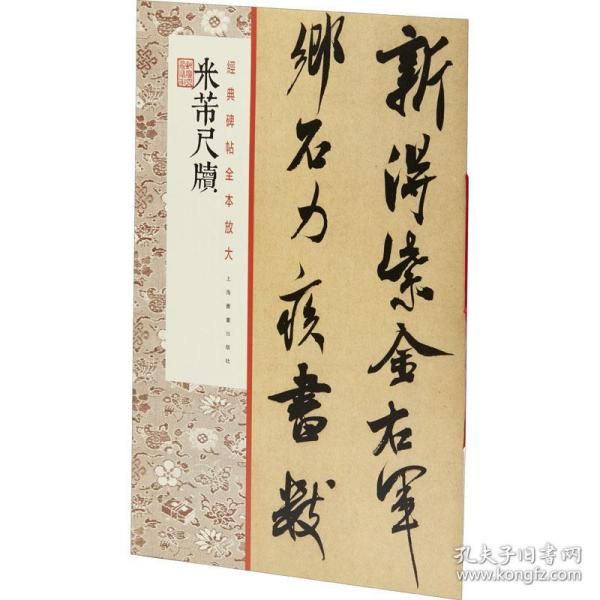 新得紫金右軍
鄉石力疾書數
經典碑帖全本放大
上海書畫出版社
米芾尺牘
孔夫子旧书网
www.kongfz.com